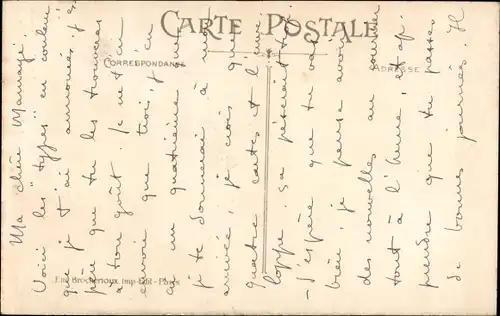 CARTE POSTALE
CORRESPONDANCE
ADRESSE
Ma chère Mamaye.
Voici les "types" en couleur
que je t'ai annoncés. J'es
père que tu les trouveras
à ton goût. Je ne t'en
envoie que trois, j'en
ai un quatrième que
je te donnerai à mon
arrivée, je crois que
quatre cartes et l'enve
loppe sa pèseraient tr
- J'espère que tu vas
bien, je pense avoir
des nouvelles au courrier
tout à l'heure, et ap
prendre que tu passes
de bonnes journées. Il
Imp-Edit - Paris